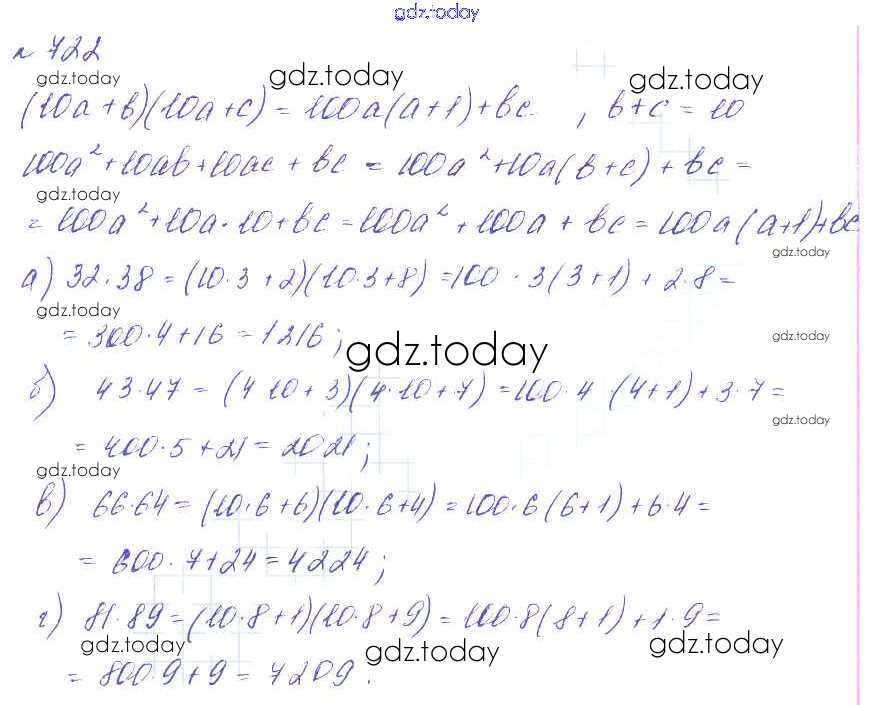 gdz.today
№ 722
gdz.today gdz.today gdz.today
(10a+b)(10a+c) = 100a(a+1)+bc , b+c = 10
100a²+10ab+10ac+bc = 100a²+10a(b+c)+bc =
gdz.today
= 100a²+10a·10+bc = 100a²+100a+bc = 100a(a+1)+bc
gdz.today
а) 32·38 = (10·3+2)(10·3+8) = 100·3(3+1)+2·8 =
gdz.today
= 300·4+16 = 1216;
gdz.today
gdz.today
б) 43·47 = (4 10+3)(4·10+7) = 100·4·(4+1)+3·7 =
gdz.today
= 400·5+21 = 2021;
gdz.today
в) 66·64 = (10·6+6)(10·6+4) = 100·6(6+1)+6·4 =
= 600·7+24 = 4224;
г) 81·89 = (10·8+1)(10·8+9) = 100·8(8+1)+1·9 =
gdz.today gdz.today gdz.today
= 800·9+9 = 7209.